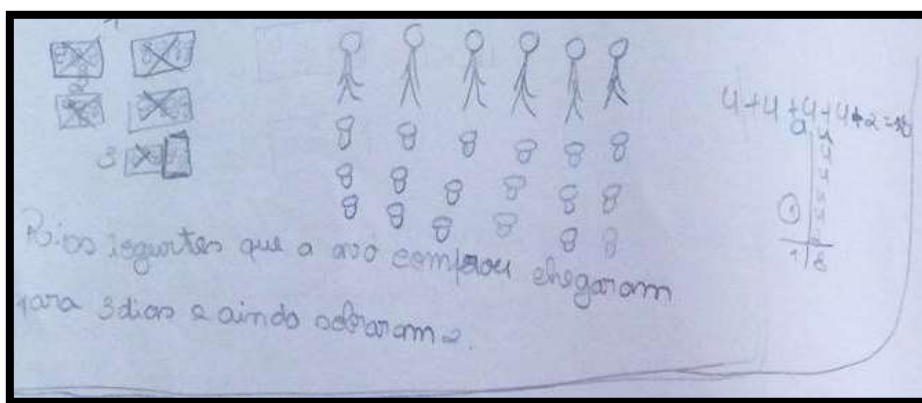 4+4+4+4+2=18
3
4
4
4
1
18
R: os iogurtes que a avó comprou chegaram
para 3 dias e ainda sobraram 2.